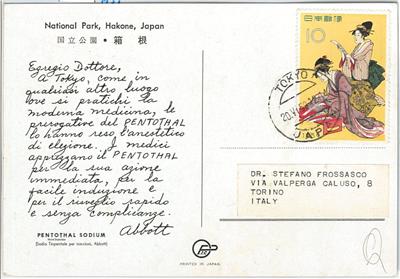 National Park, Hakone, Japan
国立公園・箱根
Egregio Dottore,
a Tokyo, come in
qualsiasi altro luogo
ove si pratichi la
moderna medicina, le
prerogative del PENTOTHAL
lo hanno reso l'anestetico
di elezione. I medici
apprezzano il PENTOTHAL
per la sua azione
immediata, per la
facile induzione e
per il risveglio rapido
e senza complicanze.
Abbott
PENTOTHAL SODIUM
(Sodio Tiopentale per iniezioni, Abbott)
PRINTED IN JAPAN.
日本郵便
10
TOKYO
20.VI
JAP
DR. STEFANO FROSSASCO
VIA VALPERGA CALUSO, 8
TORINO
ITALY